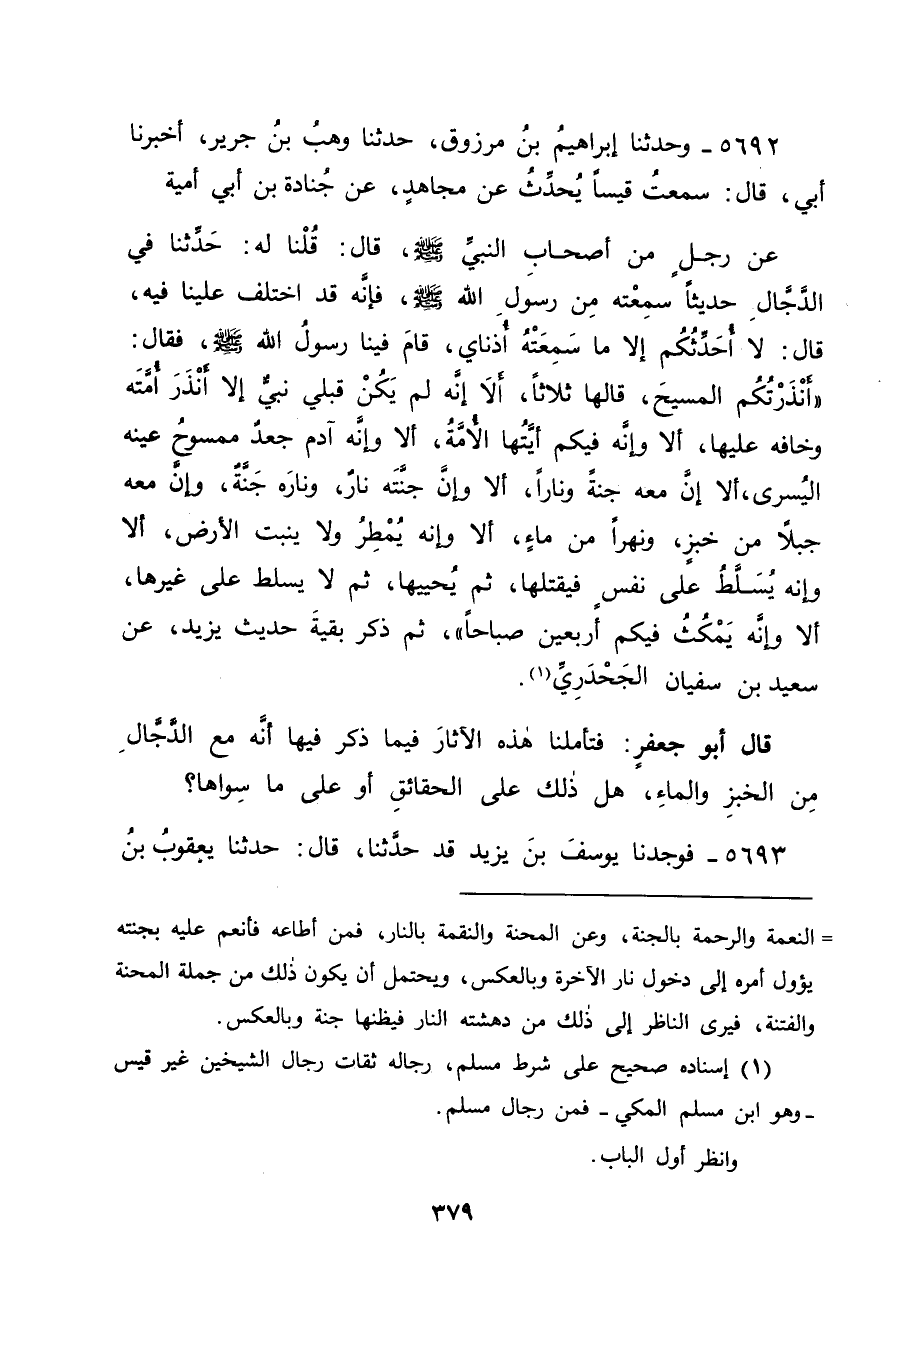 ٥٦٩٢ ـ وحدثنا إبراهيمُ بنُ مرزوق، حدثنا وهبُ بنُ جرير، أخبرنا
أبي، قال: سمعتُ قيساً يُحدِّثُ عن مجاهدٍ، عن جُنادة بن أبي أمية
عن رجلٍ من أصحابِ النبيِّ ﷺ، قال: قُلْنا له: حَدِّثنا في
الدَّجَّالِ حديثاً سمِعْته مِن رسولِ الله ﷺ، فإنَّه قد اختلف علينا فيه،
قال: لا أُحَدِّثُكُم إلا ما سَمِعَتْهُ أُذناي، قامَ فينا رسولُ الله ﷺ، فقال:
«أَنْذَرْتُكُم المسيحَ، قالها ثلاثاً، أَلَا إنَّه لم يَكُنْ قبلي نبيٌّ إلا أَنْذَرَ أُمَّتَه
وخافه عليها، ألا وإنَّه فيكم أيَّتُها الأُمَّةُ، ألا وإنَّه آدم جعدٌ ممسوحُ عينه
اليُسرى،ألا إنَّ معه جنةً وناراً، ألا وإنَّ جنَّتَه نارٌ، ونارَه جَنَّةٌ، وإنَّ معه
جبلًا من خبزٍ، ونهراً من ماءٍ، ألا وإنه يُمْطِرُ ولا ينبت الأرض، ألا
وإنه يُسَلَّطُ على نفسٍ فيقتلها، ثم يُحييها، ثم لا يسلط على غيرها،
ألا وإنَّه يَمْكُثُ فيكم أربعين صباحاً»، ثم ذكر بقيةَ حديث يزيد، عن
سعيد بن سفيان الجَحْدَرِيِّ(١).
قال أبو جعفرٍ: فتأملنا هٰذه الآثارَ فيما ذكر فيها أنَّه مع الدَّجَّالِ
مِن الخبزِ والماءِ، هل ذٰلك على الحقائقِ أو على ما سِواها؟
٥٦٩٣ ـ فوجدنا يوسفَ بنَ يزيد قد حدَّثنا، قال: حدثنا يعقوبُ بنُ
= النعمة والرحمة بالجنة، وعن المحنة والنقمة بالنار، فمن أطاعه فأنعم عليه بجنته
يؤول أمره إلى دخول نار الآخرة وبالعكس، ويحتمل أن يكون ذٰلك من جملة المحنة
والفتنة، فيرى الناظر إلى ذٰلك من دهشته النار فيظنها جنة وبالعكس.
(١) إسناده صحيح على شرط مسلم، رجاله ثقات رجال الشيخين غير قيس
ـ وهو ابن مسلم المكي ـ فمن رجال مسلم.
وانظر أول الباب.
٣٧٩